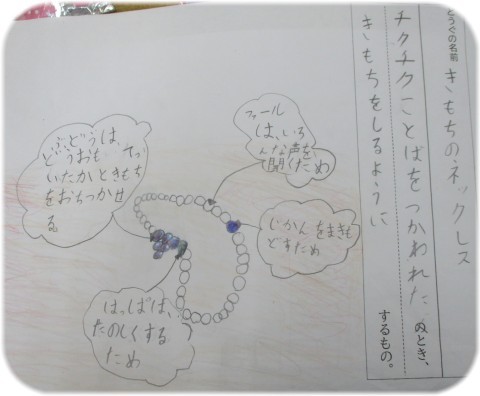 どうぐの名前
きもちのネックレス
チクチクことばをつかわれた のとき、
きもちをしるように するもの。
ファール
は、いろ
んな声を、
聞くため
じかんをまきも
どすため
ぶどうは、
どうおも
いたかときもち
をおちつかせ
る
はっぱは、
たのしくする
ため